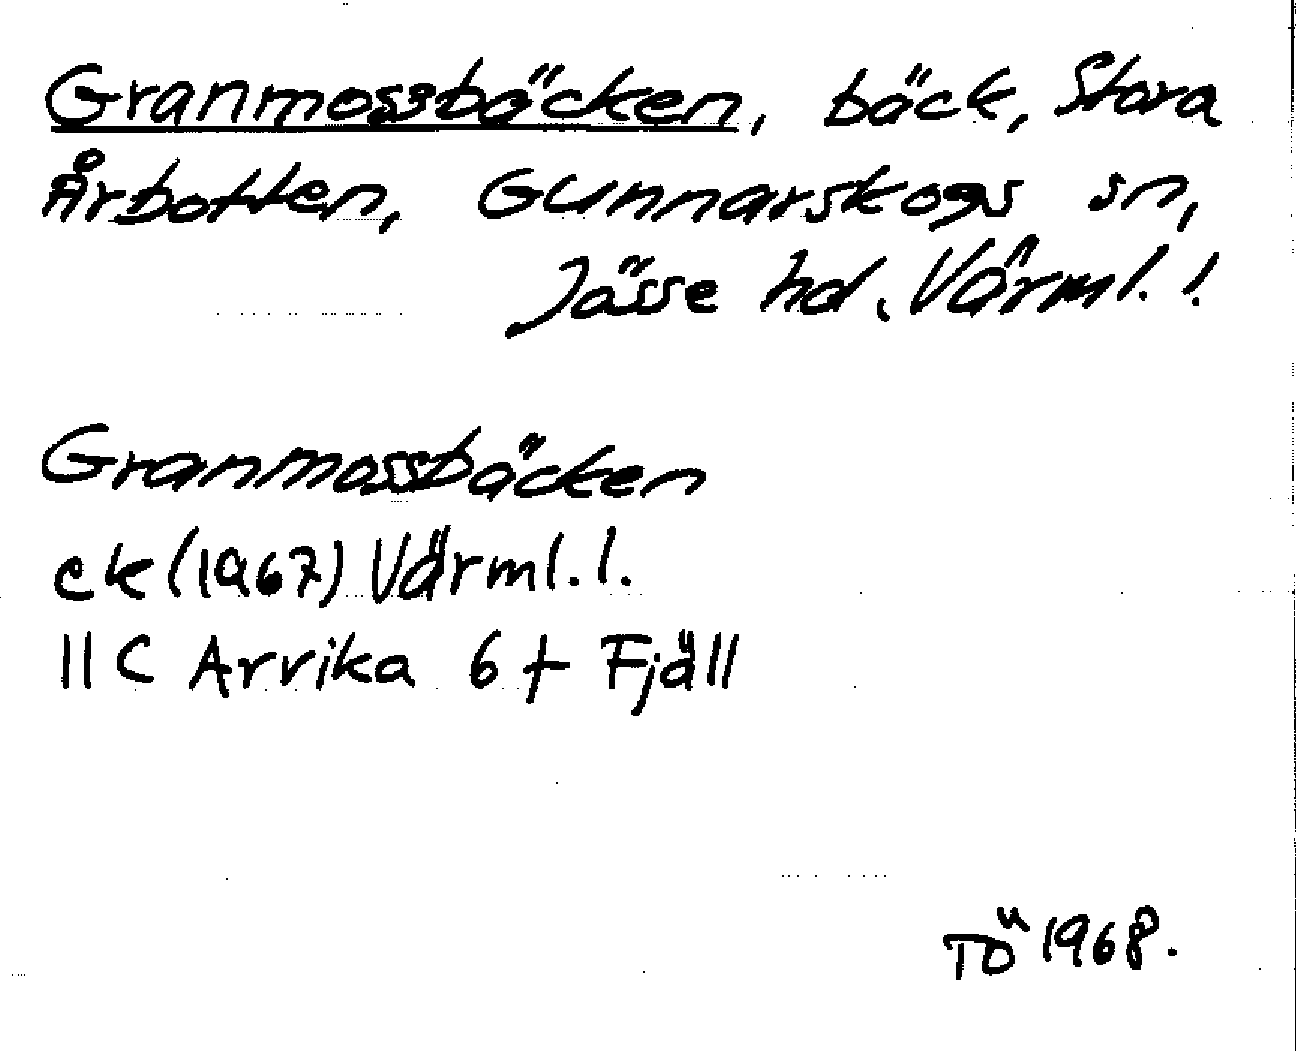 Granmossbäcken, bäck, Stora
Årbotten, Gunnarskogs sn,
Jösse hd, Värml. l.
Granmossbäcken
ek (1967) Värml. l.
11C Arvika 6 f Fjäll
TÖ 1968.